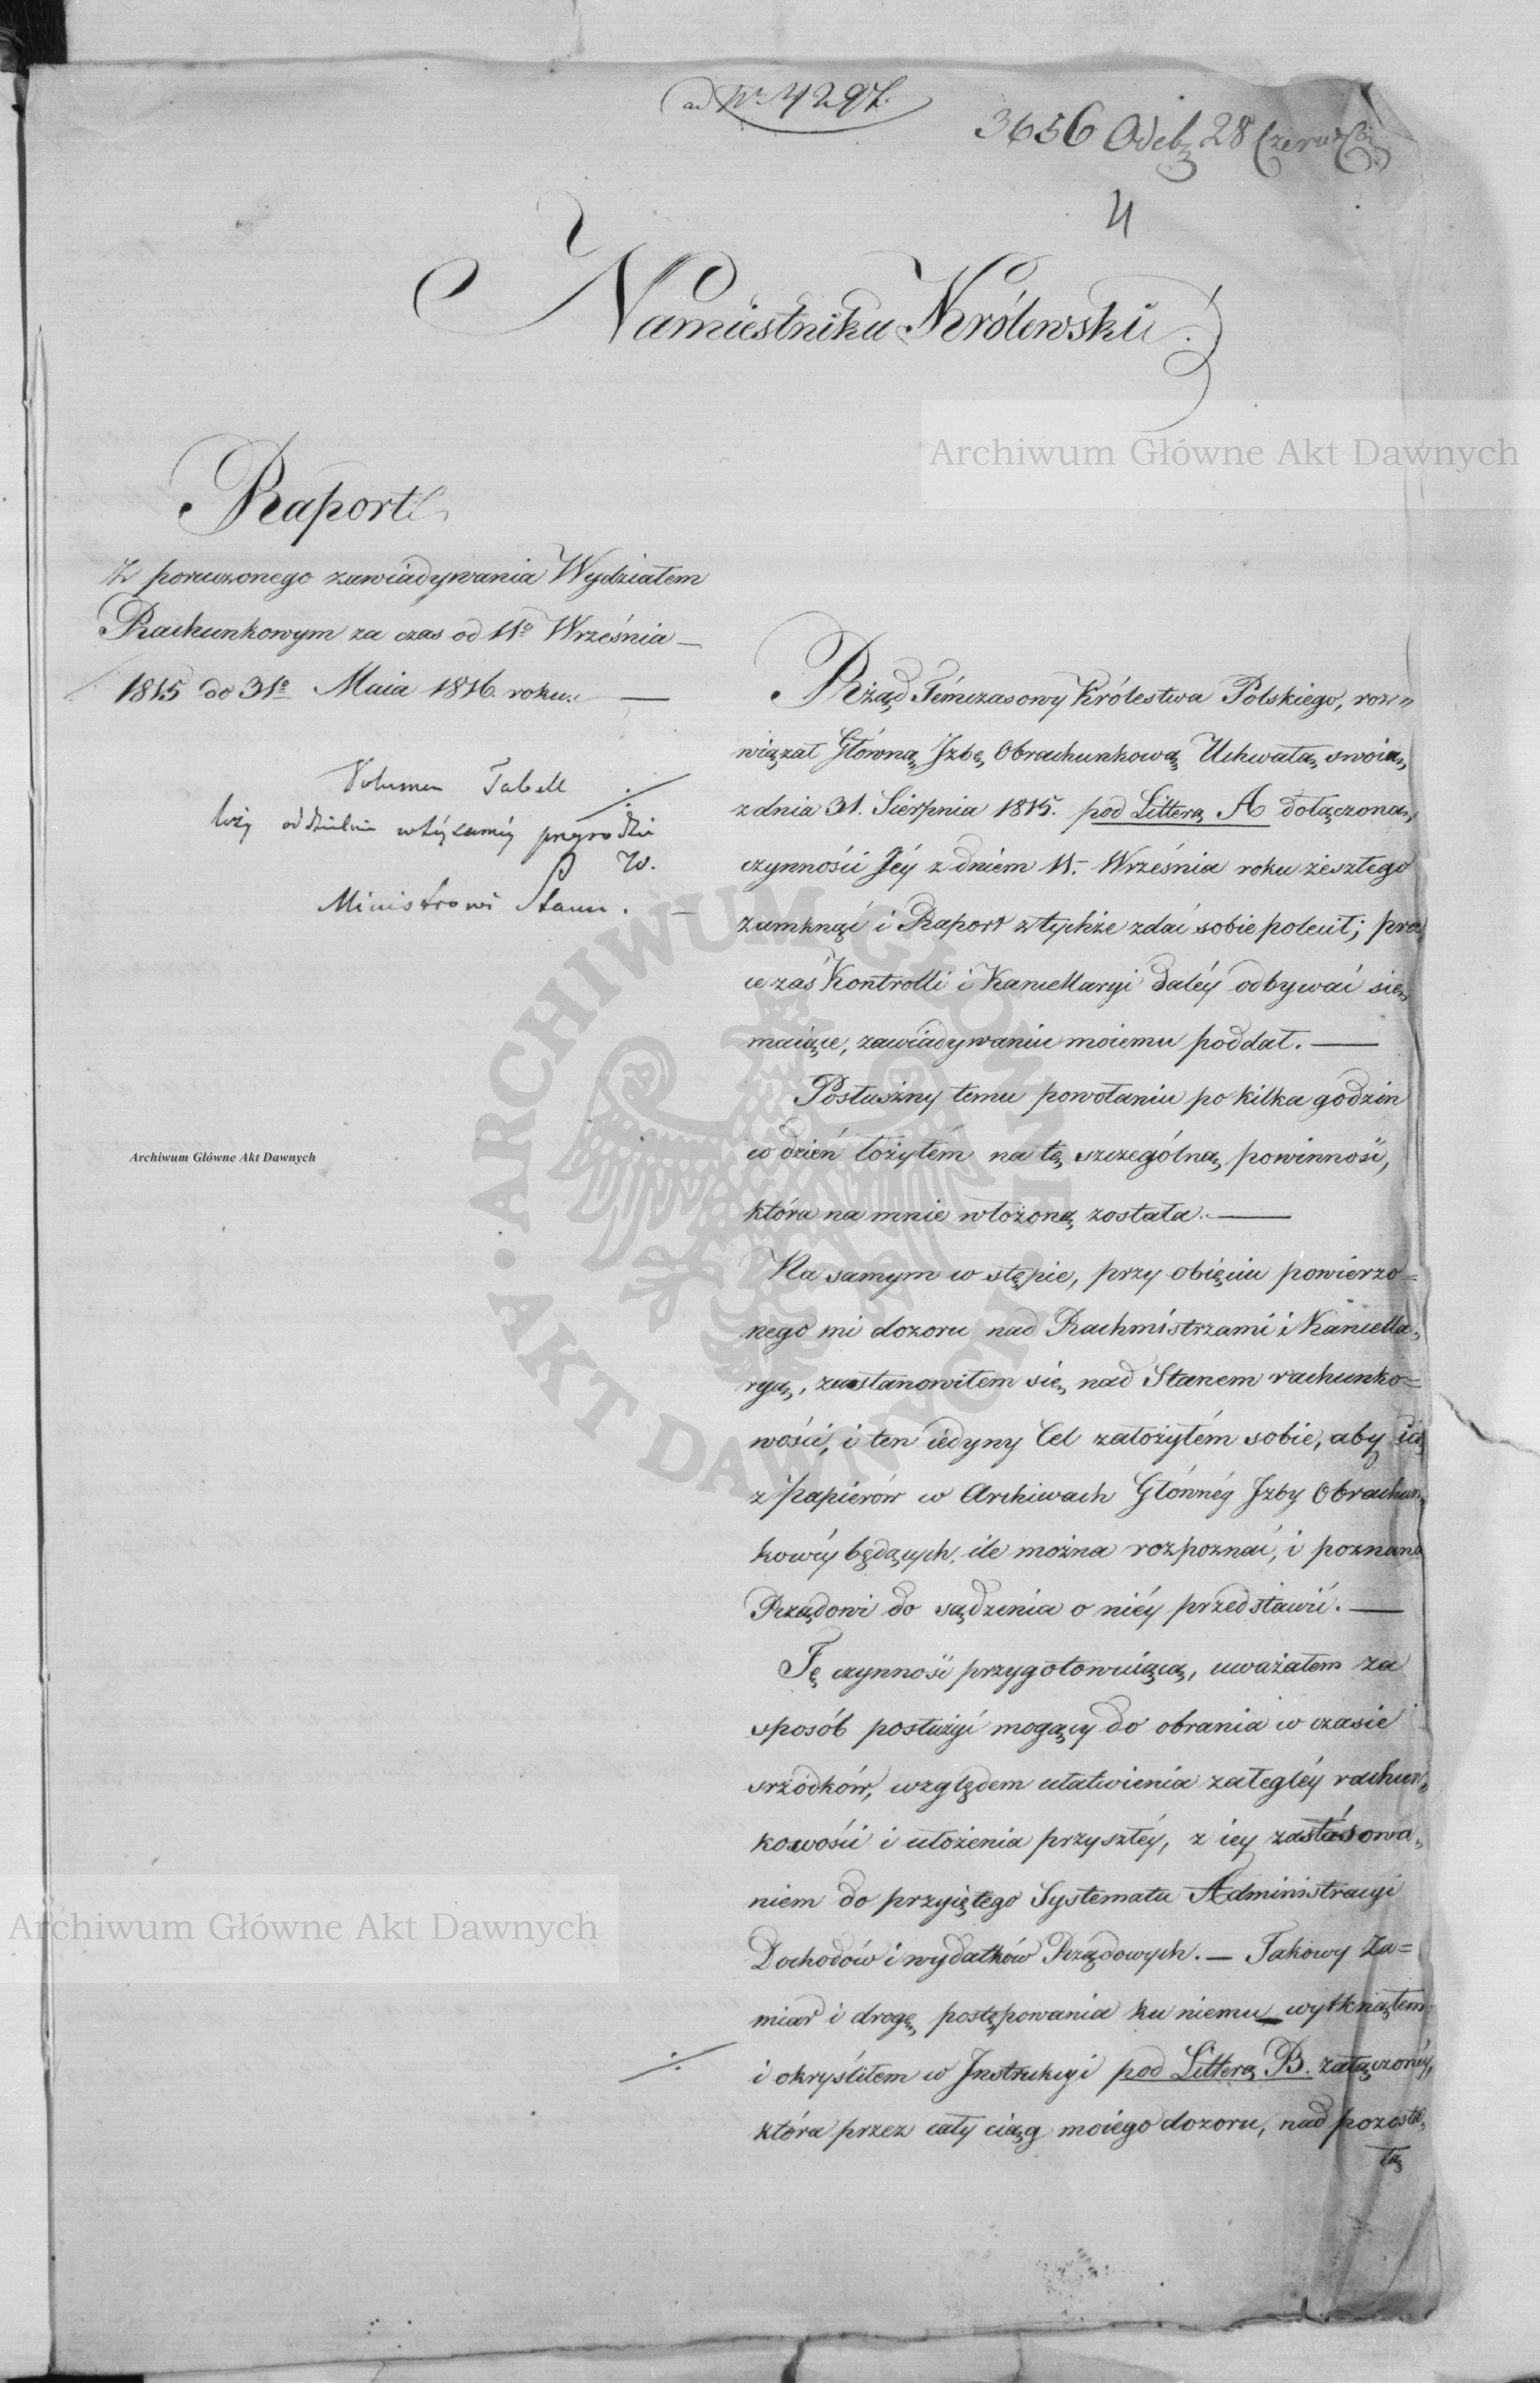 ad Nr 4297.
3656 Odeb 28 Czerwca
4
Namiestniku Królewski!
Archiwum Główne Akt Dawnych
Raport
Z poruczonego zawiadywania Wydziałem
Rachunkowym za czas od 11o Września —
1815 do 31o Maia 1816. roku. —
Volumen Tabell
leży oddzielnie
Ministrowi Stanu. —
Rząd Témczasowy Królestwa Polskiego, roz„
wiązał Główną Jzbę Obrachunkową Uchwałą swoią
z dnia 31. Sierpnia 1815. pod Litterą A dołączoną,
czynności Jéy z dniem 11. Września roku zeszłego
zamknąć i Raport z tychże zdać sobie polecił; pra„
ce zaś Kontrolli i Kancellaryi daléy odbywać się
maiące, zawiadywaniu moiemu poddał. —
Posłuszny temu powołaniu po kilka godzin
w dzień łożyłém na tę szczególną powinność,
która na mnie włożoną została. —
Na samym wstępie, przy obięciu powierzo=
nego mi dozoru nad Rachmistrzami i Kancella„
ryą, zastanowiłem się nad Stanem rachunko=
wości, i ten iedyny Cel założyłém sobie, aby ią
z papierów w Archiwach Głównéy Jzby Obrachun„
kowéy będących, ile można rozpoznać, i poznaną
Rządowi do sądzenia o niéy przedstawić. —
Tę czynność przygotowuiącą, uważałem za
sposób posłużyć mogący do obrania w czasie
srzodków, względem ułatwienia zaległéy rachun„
kowości i ułożenia przyszłéy, z iey zastosowa„
niem do przyiętego Systematu Administracyi
Dochodów i wydatków Rządowych. — Takowy Za=
miar i drogę postępowania ku niemu wytknąłem
i okryśliłem w Jnstrukcyi pod Litterą B. załączonéy,
która przez cały ciąg moiego dozoru, nad pozosta„
łą
Archiwum Główne Akt Dawnych
Archiwum Główne Akt Dawnych
ARCHIWUM GŁÓWNE • AKT DAWNYCH •